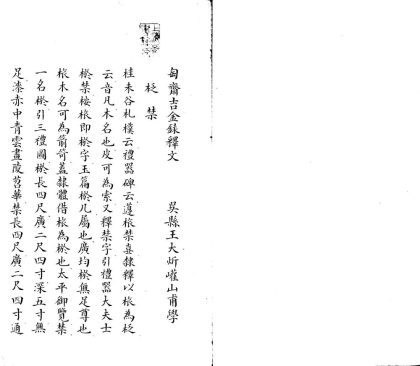 匋齋吉金錄釋文 吳縣王大炘巏山甫學
柉禁
桂未谷札樸云禮器碑云籩柉禁壺隸釋以柉為柉
云音凡木名也皮可為索又釋禁字引禮器大夫士
棜禁按柉即棜字玉篇棜几屬也廣均棜無足尊也
柉木名可為箭笴蓋隸體借柉為棜也太平御覽禁
一名棜引三禮圖棜長四尺廣二尺四寸深五寸無
足漆赤中青雲畫陵苕華禁長四尺廣二尺四寸通